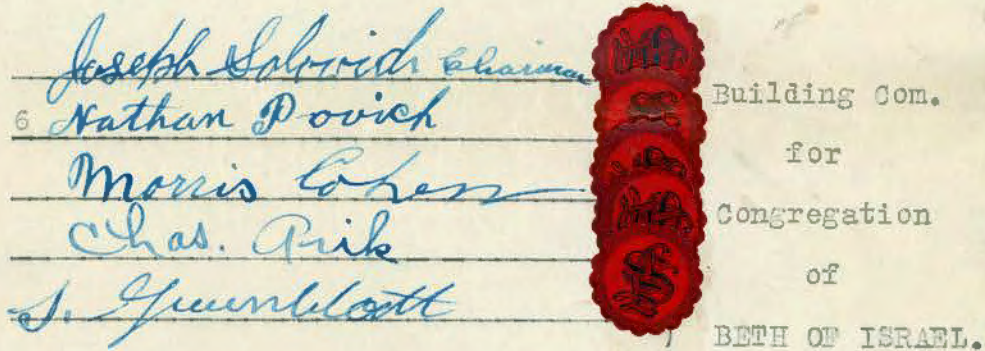 Joseph Solovich Chairman
6 Nathan Povich
Morris Cohen
Chas. Arik
S. Greenblatt
Building Com.
for
Congregation
of
BETH OF ISRAEL.